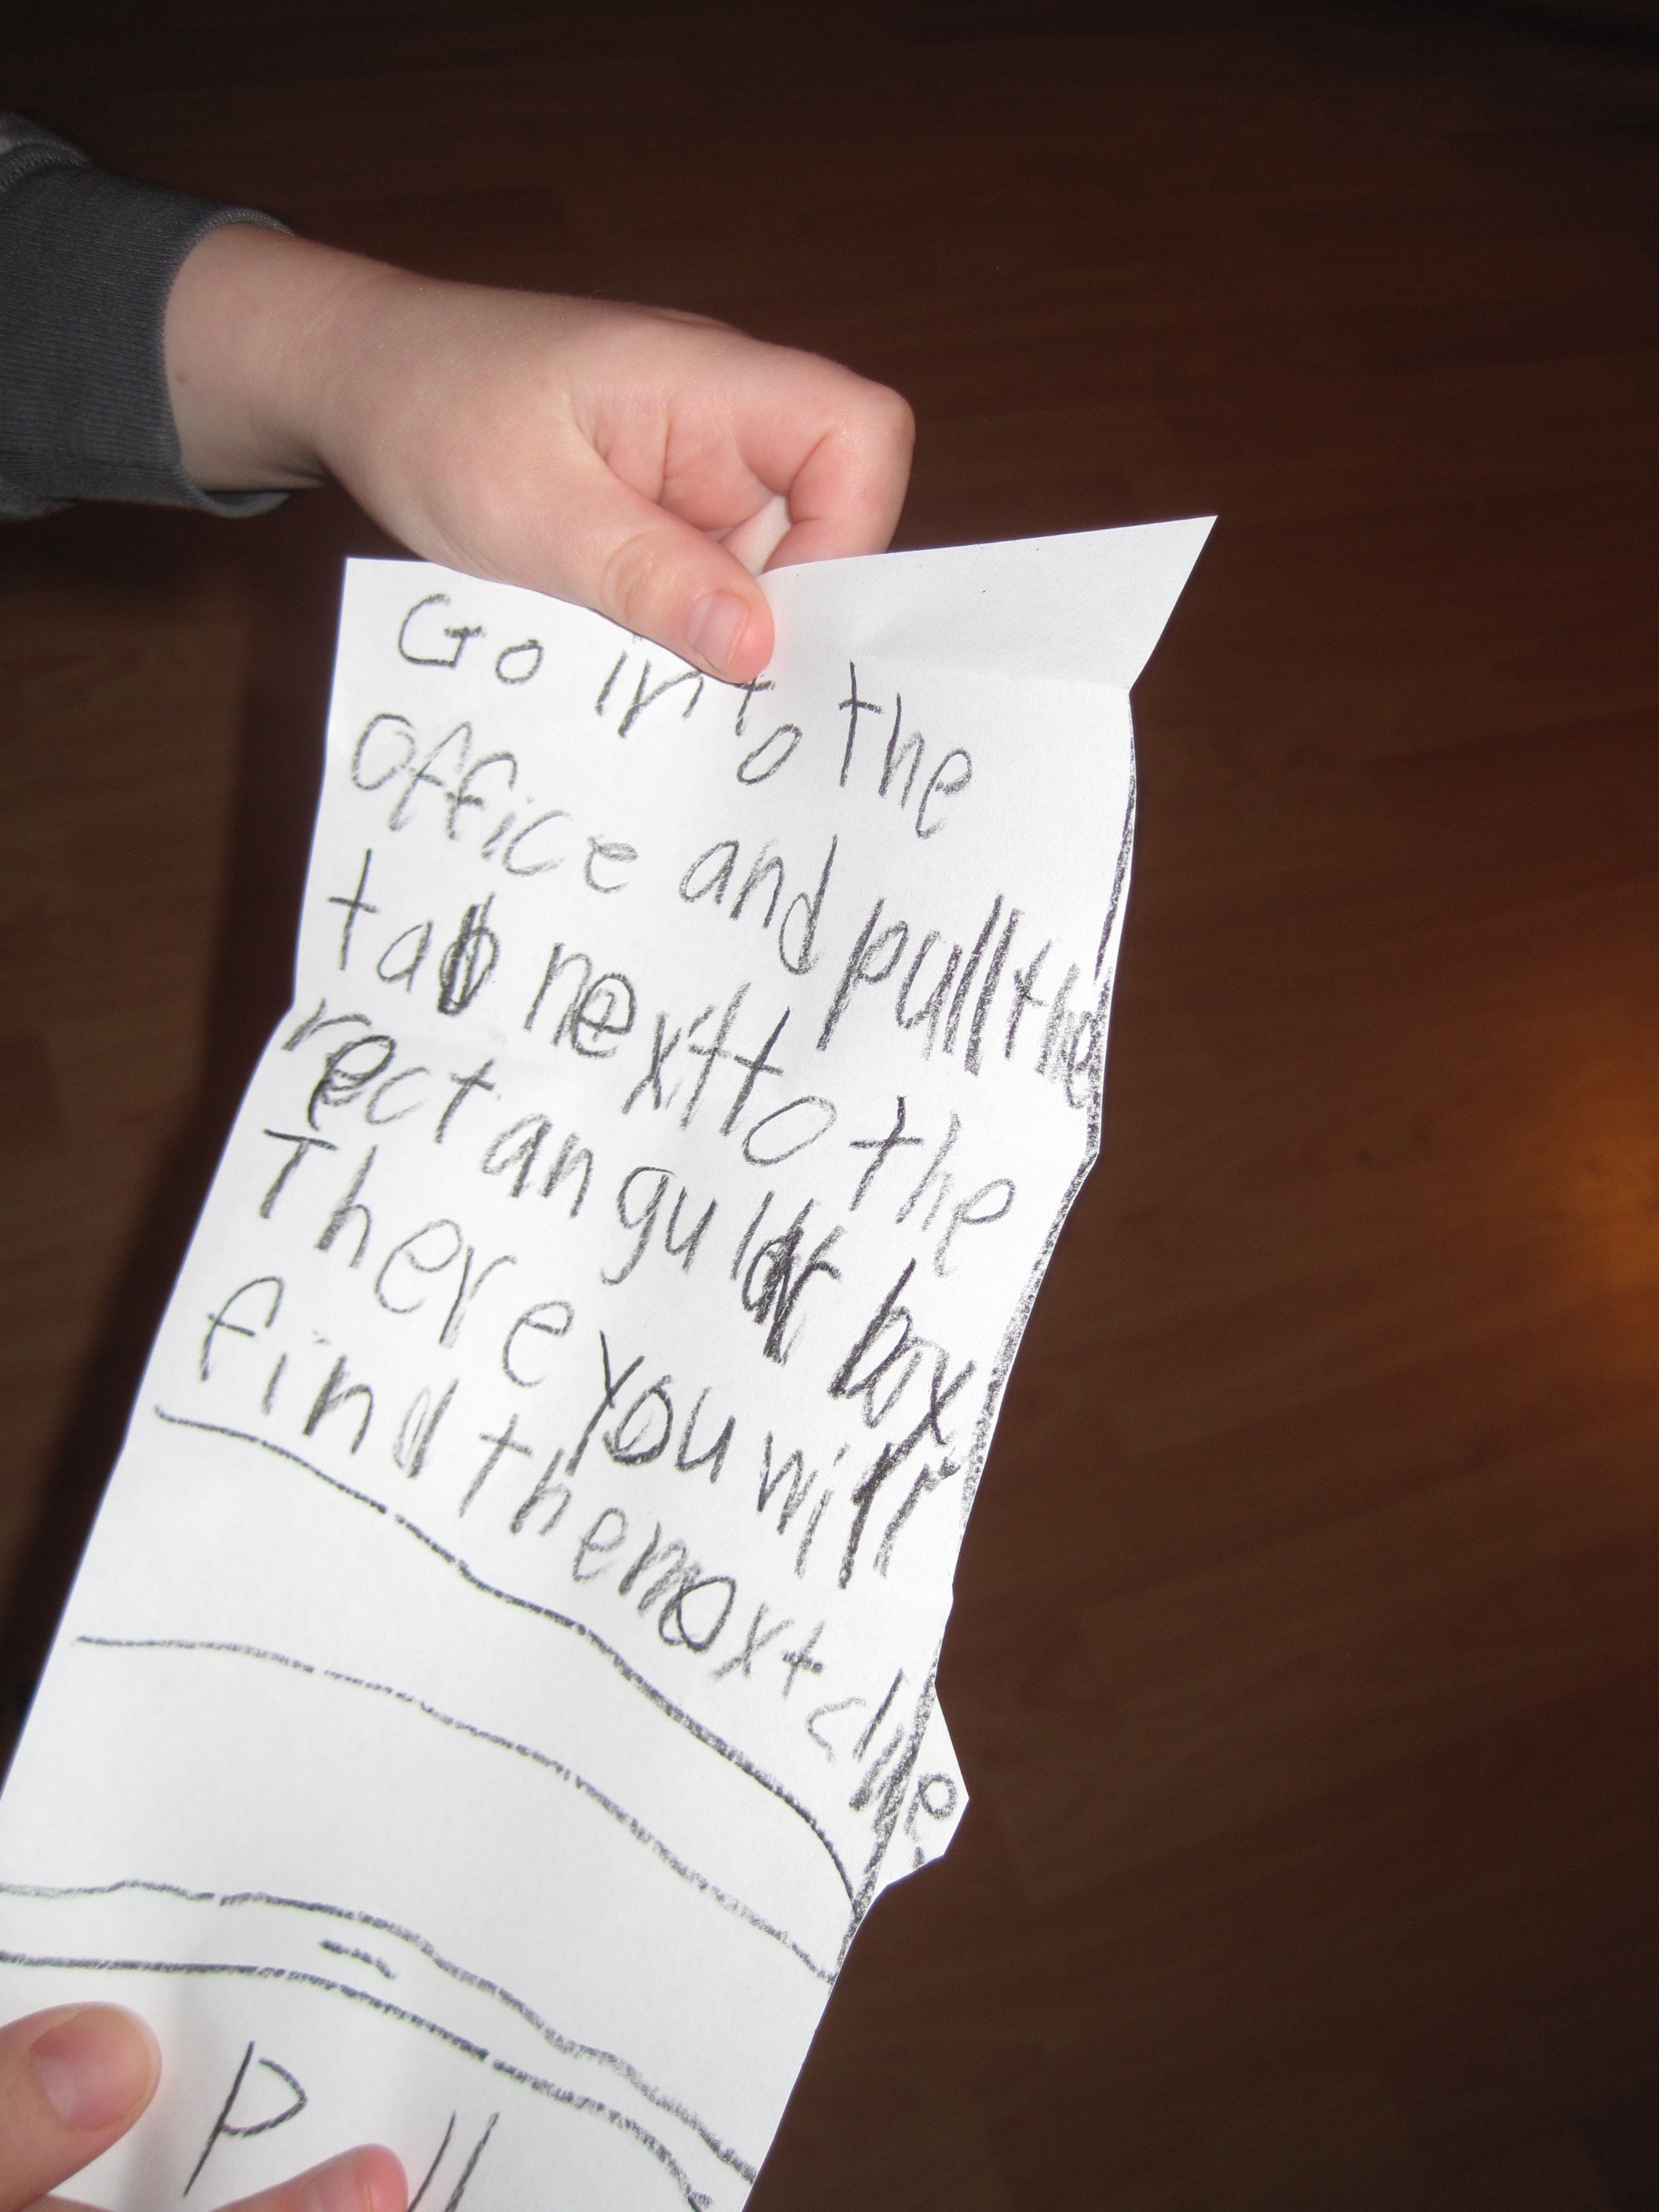 Go into the
office and pull the
tab next to the
rectangular box
There you will
find the next clue.